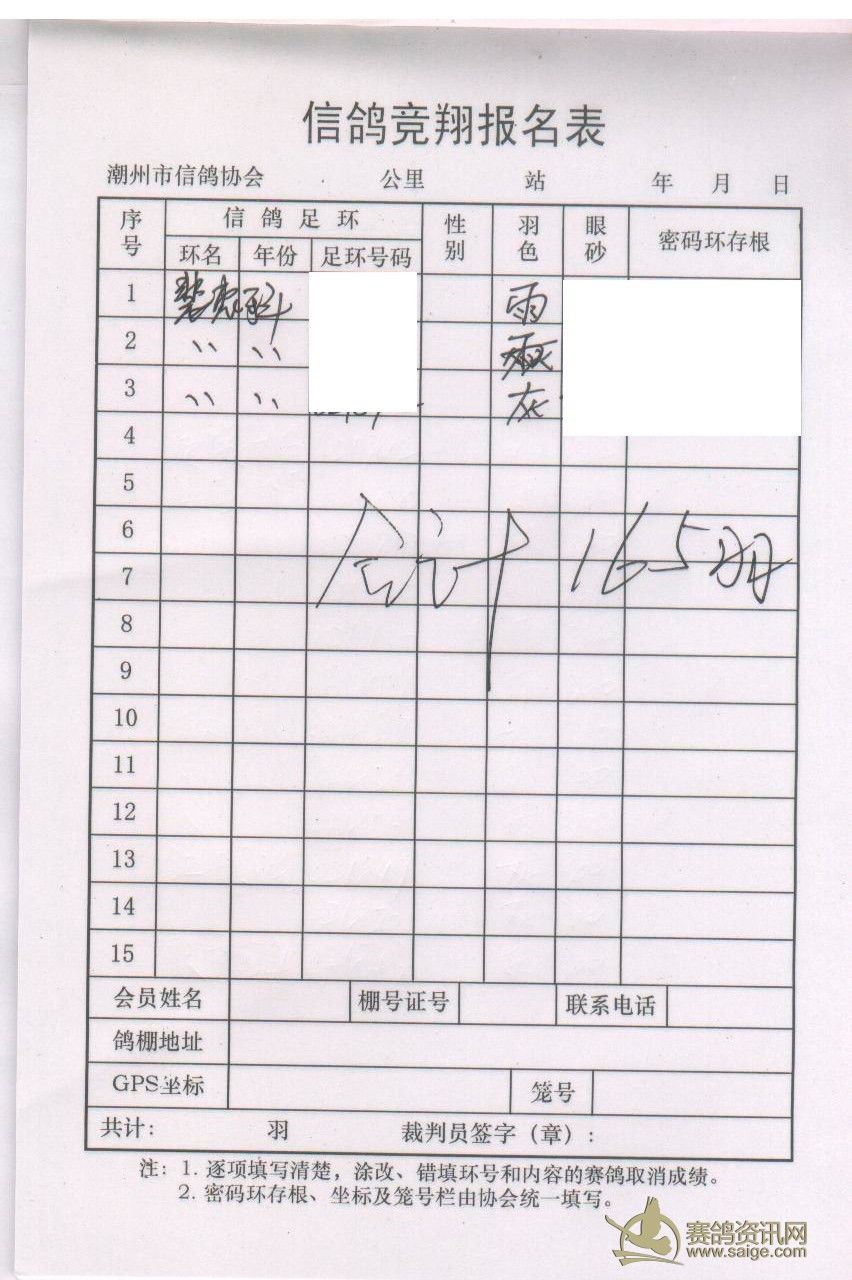 信鸽竞翔报名表
潮州市信鸽协会 公里 站 年 月 日
序号 信鸽足环 性别 羽色 眼砂 密码环存根
环名 年份 足环号码
1 雨
2 〃 〃
3 〃 〃 灰
4
5
6
合计 165羽
7
8
9
10
11
12
13
14
15
会员姓名 棚号证号 联系电话
鸽棚地址
GPS坐标 笼号
共计: 羽 裁判员签字（章）:
注: 1. 逐项填写清楚，涂改、错填环号和内容的赛鸽取消成绩。
2. 密码环存根、坐标及笼号栏由协会统一填写。
赛鸽资讯网
www.saige.com